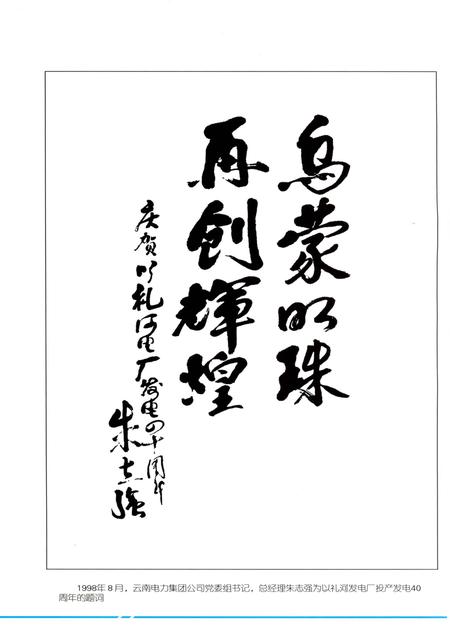 乌蒙明珠
再创辉煌
庆贺以礼河电厂发电四十周年
朱志强
1998年8月，云南电力集团公司党委组书记，总经理朱志强为以礼河发电厂投产发电40
周年的题词